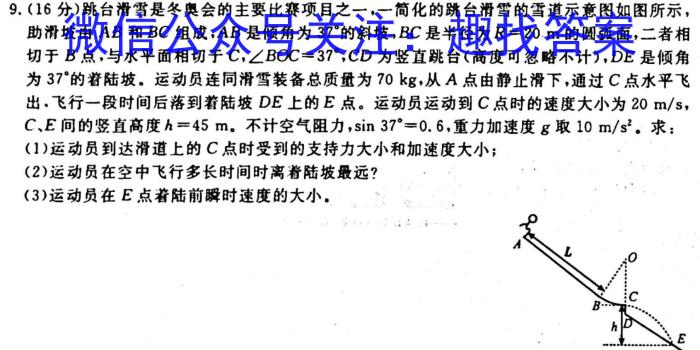 9.(16 分)跳台滑雪是冬奥会的主要比赛项目之一,一简化的跳台滑雪的雪道示意图如图所示,
助滑坡由 AB 和 BC 组成,AB 是倾角为 37°的斜坡,BC 是半径为 R=20 m 的圆弧面,二者相
微信公众号关注:趣找答案
切于 B 点,与水平面相切于 C,∠BOC=37°,CD 为竖直跳台(高度可忽略不计),DE 是倾角
为 37°的着陆坡。运动员连同滑雪装备总质量为 70 kg,从 A 点由静止滑下,通过 C 点水平飞
出,飞行一段时间后落到着陆坡 DE 上的 E 点。运动员运动到 C 点时的速度大小为 20 m/s,
C、E 间的竖直高度 h=45 m。不计空气阻力,sin 37°=0.6,重力加速度 g 取 10 m/s²。求:
(1)运动员到达滑道上的 C 点时受到的支持力大小和加速度大小;
(2)运动员在空中飞行多长时间时离着陆坡最远?
(3)运动员在 E 点着陆前瞬时速度的大小。
A
L
O
B
C
D
h
E